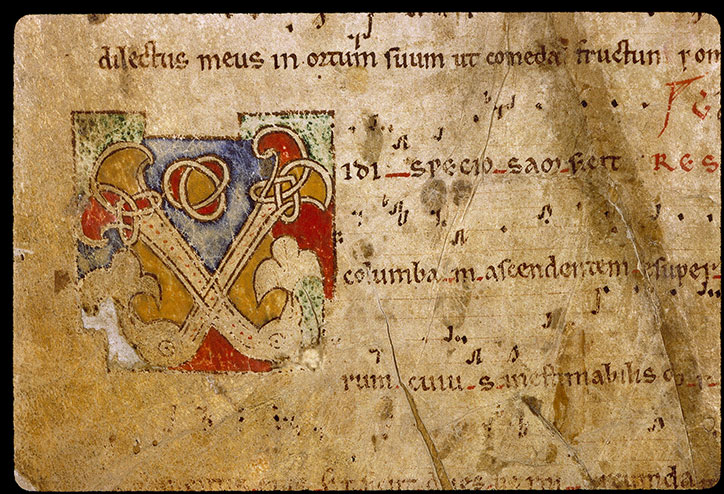 dilectus meus in ortum suum ut comeda fructun pom
Vidi specio sam sicut RES
columba m ascendentem super
rum cuiu s inestimabilis o
sicut dies